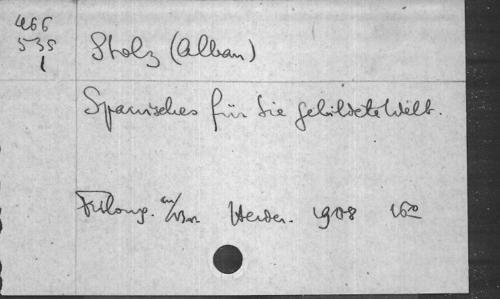 466
535
1
Stolz (Alban)
Spanisches für die gebildete Welt.
Herder. 1908 16°